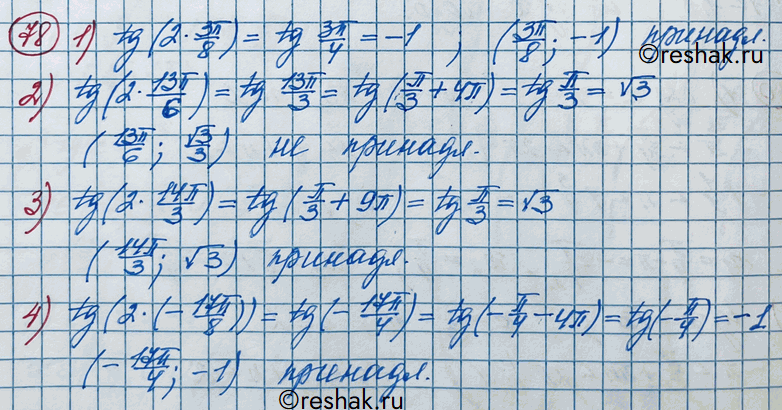 78 1) tg(2·3π/8) = tg 3π/4 = -1 ; (3π/8; -1) принадл.
2) tg(2·13π/6) = tg 13π/3 = tg(π/3 + 4π) = tg π/3 = √3
(13π/6; √3/3) не принадл.
3) tg(2·14π/3) = tg(π/3 + 9π) = tg π/3 = √3
(14π/3; √3) принадл.
4) tg(2·(-17π/8)) = tg(-17π/4) = tg(-π/4 - 4π) = tg(-π/4) = -1
(-17π/4; -1) принадл.
©reshak.ru
©reshak.ru